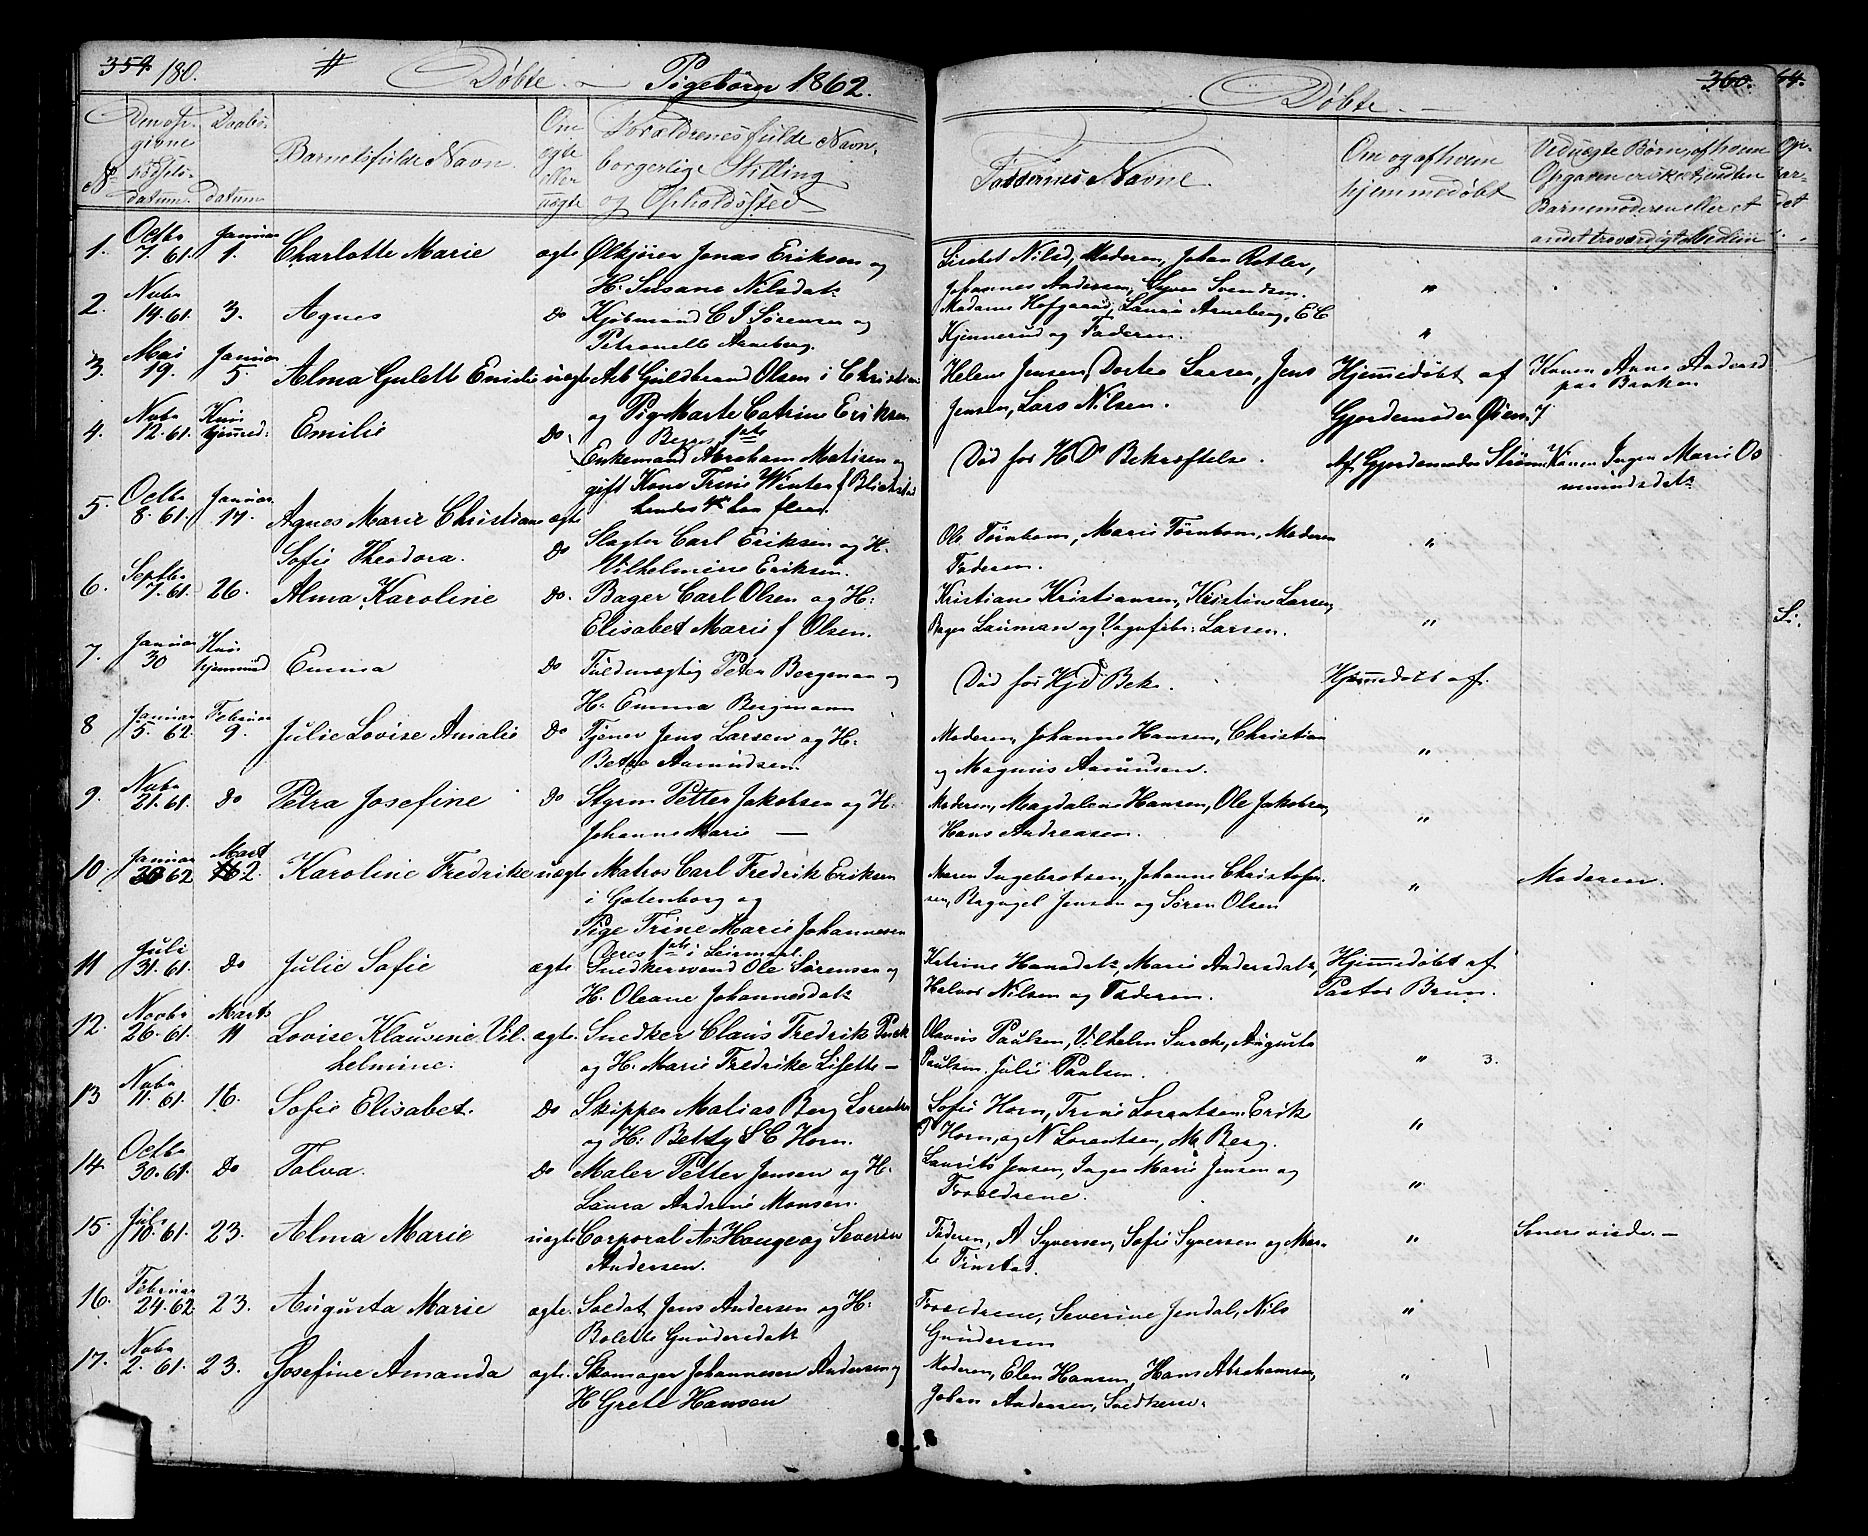 359. 180. # Døbte. Pigebørn 1862.
Døbte. 360. 64.
No
Den op-
givne
Fødsels-
datum.
Daabs-
datum
Barnets fulde Navn.
Om
ægte
eller
uægte
Forældrenes fulde Navn,
borgerlige Stilling
og Opholdssted
Faddernes Navne.
Om og af hvem
hjemmedøbt
Ved uægte Børn, af hvem
Opgaven er sket, enten
Barnemoderen eller et
andet troværdigt Medlem
1. Octbr 7. 61. Januar 1. Charlotte Marie ægte Ølkjører Jonas Eriksen og
H: Susane Nilsdatr
Lisebet Nilsd, Moderen, Johan Rotler,
Johannes Andersen, Syver Svendsen. "
2. Novbr 14. 61. 3. Agnes Do Kjøbmand C J Sørensen og
Petronelle Arneberg.
Madame Hofgaard, Laura Arneberg, E C
Kjennerud og Faderen. "
3. Mai 19. Januar 5. Alma Gulett Emilie uægte Arb Guldbrand Olsen i Christian
og Pig Marte Catrine Eriksen
Begges 1ste
Helene Jensen, Dorte Larsen, Jens
Jensen, Lars Nilsen.
Hjemmedøbt af
Gjordemoder Øiens
Konen Anne Andersd
paa Brakan
4. Novbr 12. 61. Kun hjemmed: Emilie Do Enkemand Abraham Matisen og
gift Kone Trine Winter f Blichstad
hendes 4de han flere
Død før HDs Bekræftelse.
Af Gjordemoder Strøm
Konen Inger Marie Os
mundsdatr
5. Octbr 8. 61. Januar 17. Agnes Marie Christiane ægte
Sofie Theodora. Do Slagter Carl Eriksen og H.
Vilhelmine Eriksen.
Ole Tørnbom, Marie Tørnbom, Moderen
Faderen. "
6. Septbr 7. 61. 26. Alma Karoline Do. Bager Carl Olsen og H:
Elisabet Marie f Olsen.
Kristiane Kristiansen, Kristine Larsen,
Bager Lauman og Vognførbr: Larsen. "
7. Januar 30 Kun hjemmed Emma Do Fuldmægtig Peter Bergman og
H: Emma Bergmann
Død før HjDs Bek. Hjemmedøbt af.
8 Januar 5. 62. Februar 9. Julie Lovise Amalie Do Tjener Jens Larsen og H:
Betze Aamundsen.
Moderen, Johanne Hansen, Christian
og Magnus Aamunsen. "
9. Novbr 21. 61. Do Petra Josefine Do Styrm Petter Jakobsen og H.
Johanne Marie —
Moderen, Magdalene Hansen, Ole Jakobsen,
Hans Andreasen. "
10. Januar 30 62 Mart 2. Karoline Fredrike uægte Matros Carl Fredrik Eriksen
i Gotenborg og
Pige Trine Marie Johannesen
Deres 1ste i Leiermaal.
Maren Ingebretsen, Johanne Christofer-
sen, Bagvgel Jensen og Søren Olsen " Moderen.
11 Juli 31. 61. Do Julie Sofie ægte Snedkersvend Ole Sørensen og
H. Oleane Johannesdatr
Katrine Hansdatr, Marie Andersdatr,
Halvor Nilsen og Faderen.
Hjemmedøbt af
Pastor Brun.
12. Novbr 26. 61. Marts 11 Lovise Klausine Vil-
helmine. ægte. Snedker Claus Fredrik
og H. Marie Fredrike Lisette —
Olavus Paulsen, Vilhelm, Augusta
Paulsen. Julie Paulsen. " 3.
13 Novbr 11. 61. 16. Sofie Elisabet. Do Skipper Matias Berg Lorentsen
og H: Betzy S C Horn.
Sofie Horn, Trine Lorentsen, Erik
T Horn, og N Lorentsen, M. Berg. "
14. Octbr 30. 61. Do Tolva. Do Maler Petter Jensen og H.
Laura Andrine Monsen.
Laurits Jensen, Inger Marie Jensen og
Forældrene. "
15. Juli 10. 61. 23. Alma Marie uægte Corporal A: Hauge og Severine
Andersen.
Faderen, A Syversen, Sofie Syversen og Mar-
te Finstad. "
16. Februar 24. 62 23. Augusta Marie ægte. Soldat Jens Andersen og H:
Bolette Gundersdatr
Forældrene, Severine Jendal, Nils
Gundersen "
17. Novbr 2. 61. 23. Josefine Amanda ægte. Skomager Johannesen Andersen og
H Grete Hansen
Moderen, Elen Hansen, Hans Abrahamsen,
Johan Andresen, Snedkere. "